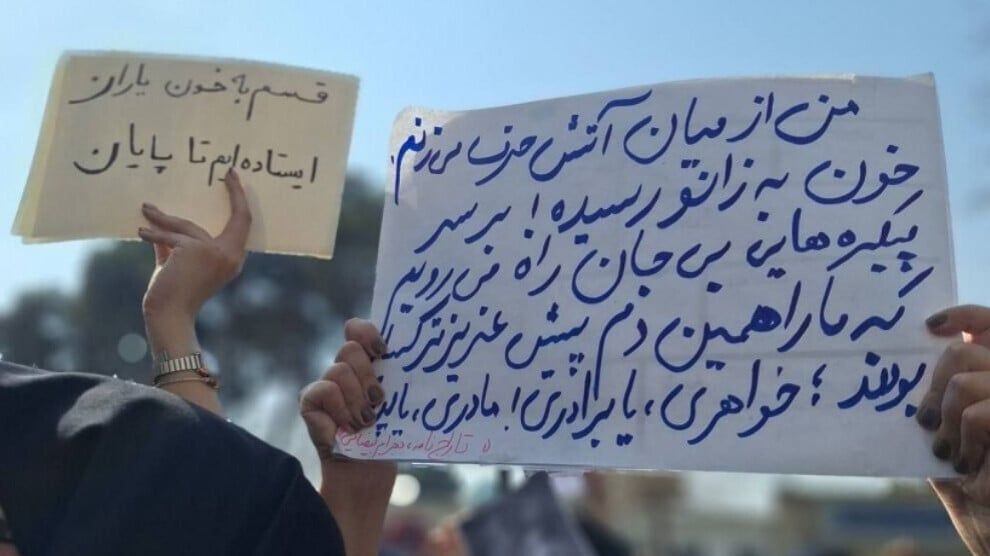 قسم به خون یاران
ایستاده ایم تا پایان
من از میان آتش حرف می زنم
خون به زانو رسیده! بر سر
پیکره هایی بی جان راه می رویم
که ما را همین دم پیش عزیزتر کسان
بودند؛ خواهری، یا برادری! مادری، یا پدر
تاراج نامه، بهرام بیضایی